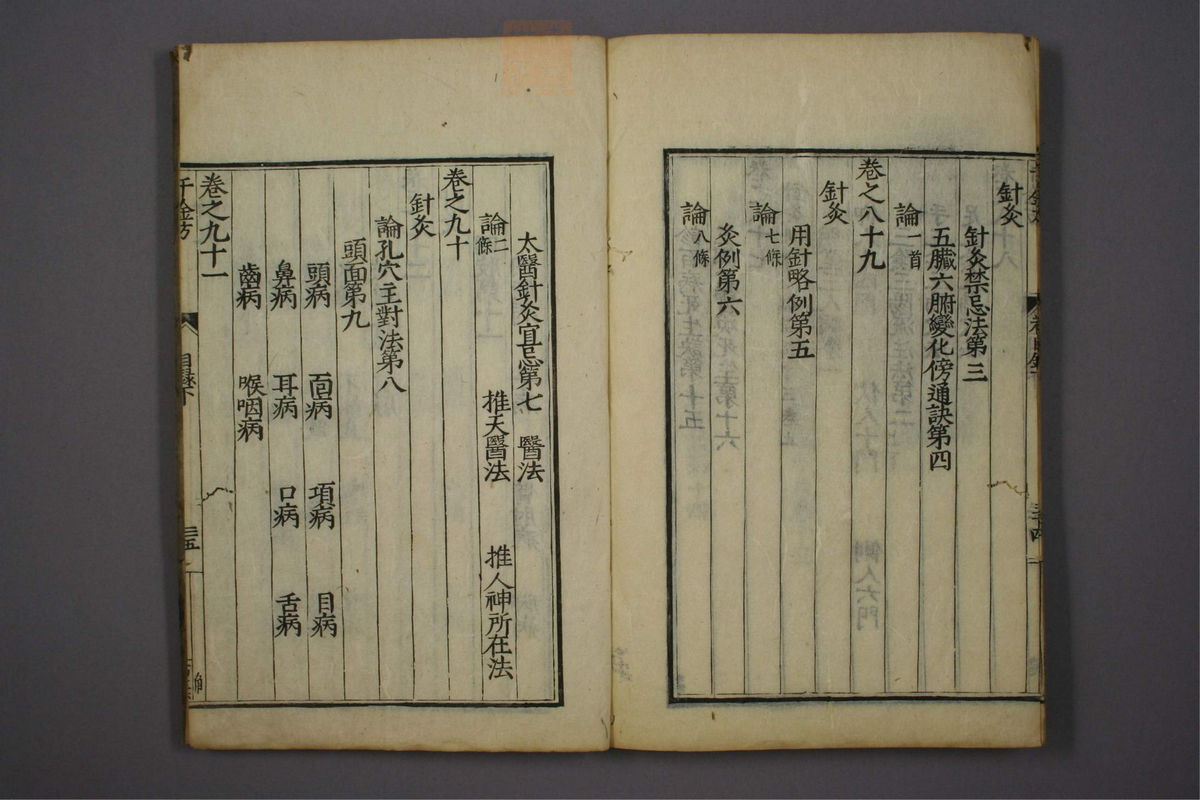 針灸
針灸禁忌法第三
五臟六腑變化傍通訣第四
論一首
卷之八十九
針灸
用針略例第五
論七條
灸例第六
論八條
太醫針灸宜忌第七 醫法
論二條 推天醫法 推人神所在法
卷之九十
針灸
論孔穴主對法第八
頭面第九
頭病 面病 項病 目病
鼻病 耳病 口病 舌病
齒病 喉咽病
卷之九十一
千金方 目錄下 三五